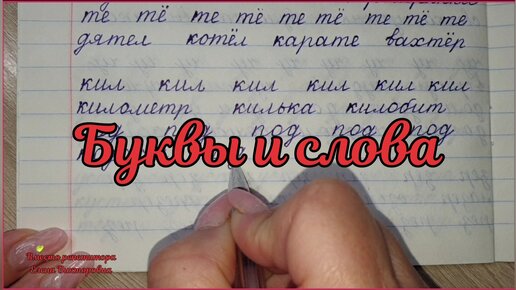 те тё те тё те тё те тё те
дятел котёл карате вахтёр
кил кил кил кил кил кил
километр килька килобит
под под под под под
Буквы и слова
Вместо репетитора
Елена Викторовна